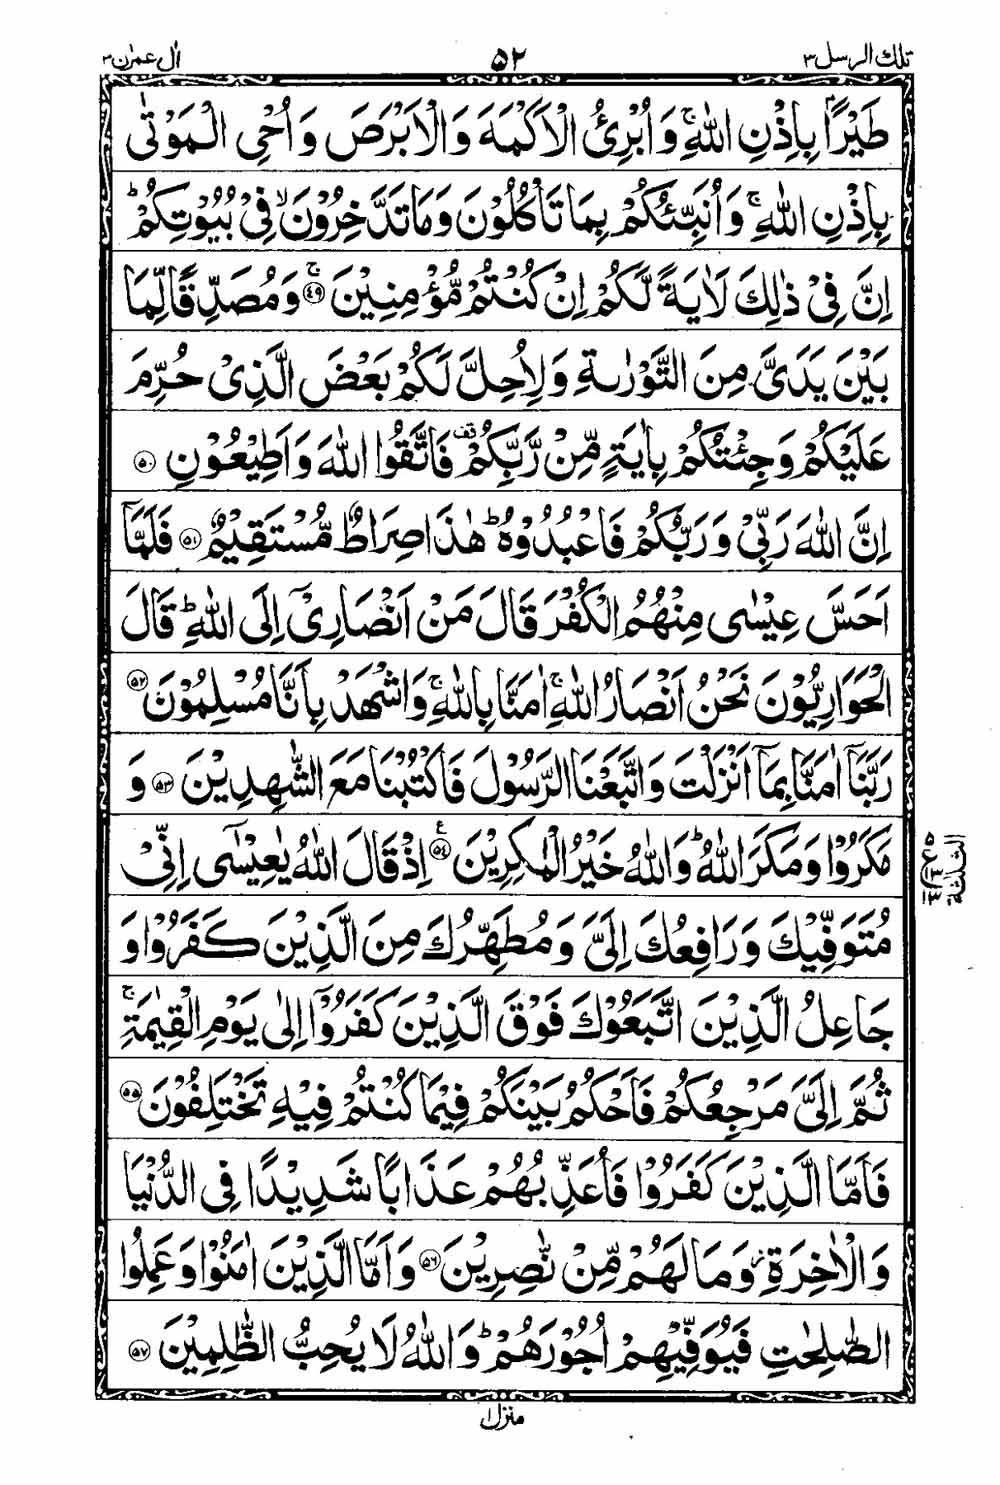 تلك الرسل ٣ ۵۲ اٰل عمرٰن ٣
طَيْرًاۢ بِاِذْنِ اللّٰهِ ۚ وَ اُبْرِئُ الْاَكْمَهَ وَ الْاَبْرَصَ وَ اُحْیِ الْمَوْتٰى
بِاِذْنِ اللّٰهِ ۚ وَ اُنَبِّئُكُمْ بِمَا تَاْكُلُوْنَ وَ مَا تَدَّخِرُوْنَ ۙ فِیْ بُيُوْتِكُمْ ؕ
اِنَّ فِیْ ذٰلِكَ لَاٰيَةً لَّكُمْ اِنْ كُنْتُمْ مُّؤْمِنِيْنَ ۚ ﴿۴۹﴾ وَ مُصَدِّقًا لِّمَا
بَيْنَ يَدَیَّ مِنَ التَّوْرٰىةِ وَ لِاُحِلَّ لَكُمْ بَعْضَ الَّذِیْ حُرِّمَ
عَلَيْكُمْ وَ جِئْتُكُمْ بِاٰيَةٍ مِّنْ رَّبِّكُمْ ۫ فَاتَّقُوا اللّٰهَ وَ اَطِيْعُوْنِ ﴿۵۰﴾
اِنَّ اللّٰهَ رَبِّیْ وَ رَبُّكُمْ فَاعْبُدُوْهُ ؕ هٰذَا صِرَاطٌ مُّسْتَقِيْمٌ ﴿۵۱﴾ فَلَمَّاۤ
اَحَسَّ عِيْسٰى مِنْهُمُ الْكُفْرَ قَالَ مَنْ اَنْصَارِیْۤ اِلَى اللّٰهِ ؕ قَالَ
الْحَوَارِيُّوْنَ نَحْنُ اَنْصَارُ اللّٰهِ ۚ اٰمَنَّا بِاللّٰهِ ۚ وَ اشْهَدْ بِاَنَّا مُسْلِمُوْنَ ﴿۵۲﴾
رَبَّنَاۤ اٰمَنَّا بِمَاۤ اَنْزَلْتَ وَ اتَّبَعْنَا الرَّسُوْلَ فَاكْتُبْنَا مَعَ الشّٰهِدِيْنَ ﴿۵۳﴾ وَ
مَكَرُوْا وَ مَكَرَ اللّٰهُ ؕ وَ اللّٰهُ خَيْرُ الْمٰكِرِيْنَ ﴿۵۴﴾ ع اِذْ قَالَ اللّٰهُ يٰعِيْسٰۤى اِنِّیْ
الثلٰثة ع ۵
مُتَوَفِّيْكَ وَ رَافِعُكَ اِلَیَّ وَ مُطَهِّرُكَ مِنَ الَّذِيْنَ كَفَرُوْا وَ
جَاعِلُ الَّذِيْنَ اتَّبَعُوْكَ فَوْقَ الَّذِيْنَ كَفَرُوْۤا اِلٰى يَوْمِ الْقِيٰمَةِ ۚ
ثُمَّ اِلَیَّ مَرْجِعُكُمْ فَاَحْكُمُ بَيْنَكُمْ فِيْمَا كُنْتُمْ فِيْهِ تَخْتَلِفُوْنَ ﴿۵۵﴾
فَاَمَّا الَّذِيْنَ كَفَرُوْا فَاُعَذِّبُهُمْ عَذَابًا شَدِيْدًا فِی الدُّنْيَا
وَ الْاٰخِرَةِ ؗ وَ مَا لَهُمْ مِّنْ نّٰصِرِيْنَ ﴿۵۶﴾ وَ اَمَّا الَّذِيْنَ اٰمَنُوْا وَ عَمِلُوا
الصّٰلِحٰتِ فَيُوَفِّيْهِمْ اُجُوْرَهُمْ ؕ وَ اللّٰهُ لَا يُحِبُّ الظّٰلِمِيْنَ ﴿۵۷﴾
منزل ۱